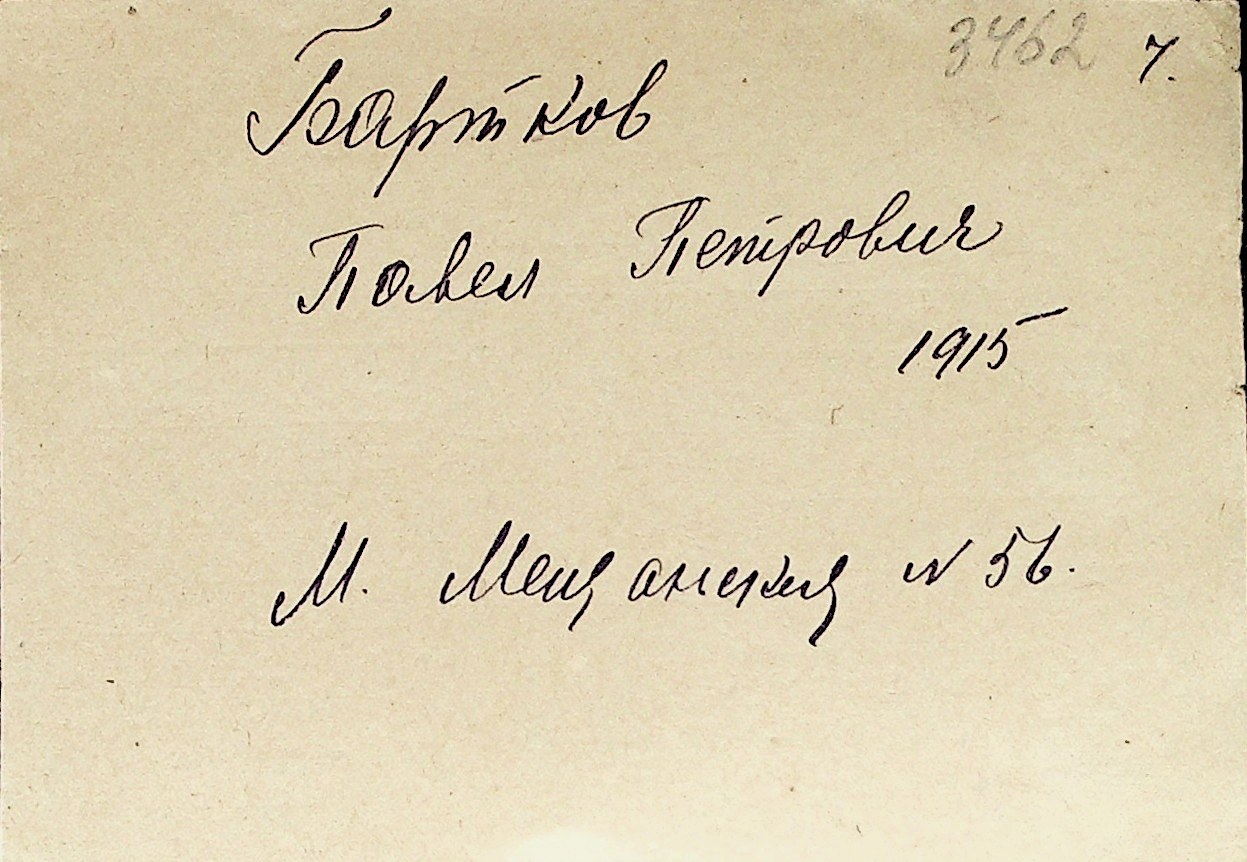 3462 7.
Бартков
Павел Петрович
1915
М. Мещанская N 56.